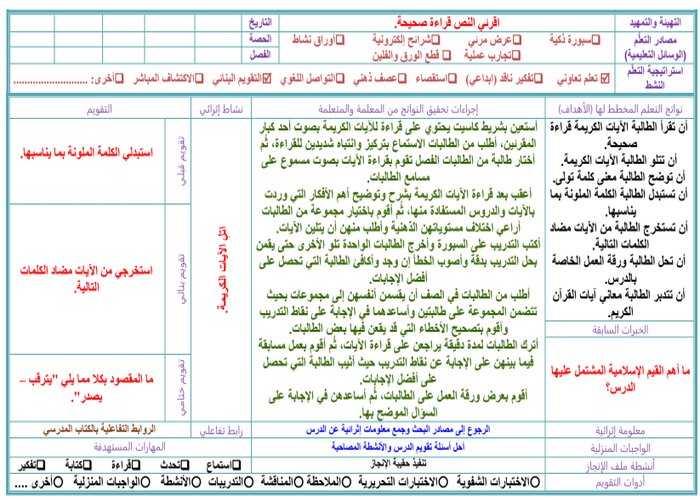 التهيئة والتمهيد
اقرئي النص قراءة صحيحة.
التاريخ
مصادر التعلم
(الوسائل التعليمية)
❑سبورة ذكية ❑عرض مرئي ❑شرائح إلكترونية ❑أوراق نشاط
❑تجارب عملية ❑ قطع الورق والفلين
الحصة
الفصل
استراتيجية التعلم
النشط
☑ تعلم تعاوني ❑تفكير ناقد (ابداعي) ❑استقصاء ❑عصف ذهني ❑التواصل اللغوي ☑التقويم البنائي ❑الاكتشاف المباشر ❑أخرى: ..............................
نواتج التعلم المخطط لها (الأهداف)
أن تقرأ الطالبة الآيات الكريمة قراءة
صحيحة.
أن تتلو الطالبة الآيات الكريمة.
أن توضح الطالبة معنى كلمة تولى.
أن تستبدل الطالبة الكلمة الملونة بما
يناسبها.
أن تستخرج الطالبة من الآيات مضاد
الكلمات التالية.
أن تحل الطالبة ورقة العمل الخاصة
بالدرس.
أن تتدبر الطالبة معاني آيات القرآن
الكريم.
الخبرات السابقة
ما أهم القيم الإسلامية المشتمل عليها
الدرس؟
إجراءات تحقيق النواتج من المعلمة والمتعلمة
أستعين بشريط كاسيت يحتوي على قراءة للآيات الكريمة بصوت أحد كبار
المقرئين، أطلب من الطالبات الاستماع بتركيز وانتباه شديدين للقراءة، ثم
أختار طالبة من الطالبات الفصل تقوم بقراءة الآيات بصوت مسموع على
مسامع الطالبات.
أعقب بعد قراءة الآيات الكريمة بشرح وتوضيح أهم الأفكار التي وردت
بالآيات والدروس المستفادة منها، ثم أقوم باختيار مجموعة من الطالبات
أراعي اختلاف مستوياتهن الذهنية وأطلب منهن أن يتلين الآيات.
أكتب التدريب على السبورة وأخرج الطالبات الواحدة تلو الأخرى حتى يقمن
بحل التدريب بدقة وأصوب الخطأ إن وجد وأكافئ الطالبة التي تحصل على
أفضل الإجابات.
أطلب من الطالبات في الصف أن يقسمن أنفسهن إلى مجموعات بحيث
تتضمن المجموعة على طالبتين وأساعدهما في الإجابة على نقاط التدريب
وأقوم بتصحيح الأخطاء التي قد يقعن فيها بعض الطالبات.
أترك الطالبات لمدة دقيقة يراجعن على قراءة الآيات، ثم أقوم بعمل مسابقة
فيما بينهن على الإجابة عن نقاط التدريب حيث أثيب الطالبة التي تحصل
على أفضل الإجابات.
أقوم بعرض ورقة العمل على الطالبات، ثم أساعدهن في الإجابة على
السؤال الموضح بها.
نشاط إثرائي
اتل الآيات الكريمة.
التقويم
تقويم قبلي
استبدلي الكلمة الملونة بما يناسبها.
تقويم بنائي
استخرجي من الآيات مضاد الكلمات
التالية.
تقويم ختامي
ما المقصود بكلا مما يلي "يترقب –
يصدر".
معلومة إثرائية
الرجوع إلى مصادر البحث وجمع معلومات إثرائية عن الدرس
رابط تفاعلي
الروابط التفاعلية بالكتاب المدرسي
الواجبات المنزلية
أحل أسئلة تقويم الدرس والأنشطة المصاحبة
المهارات المستهدفة
أنشطة ملف الإنجاز
تنفيذ حقيبة الإنجاز
❑استماع ❑تحدث ❑قراءة ❑كتابة ❑تفكير
أدوات التقويم
○الاختبارات الشفوية ○الاختبارات التحريرية ○الملاحظة ○المناقشة ○التدريبات ○الأنشطة ○الواجبات المنزلية ○أخرى ....